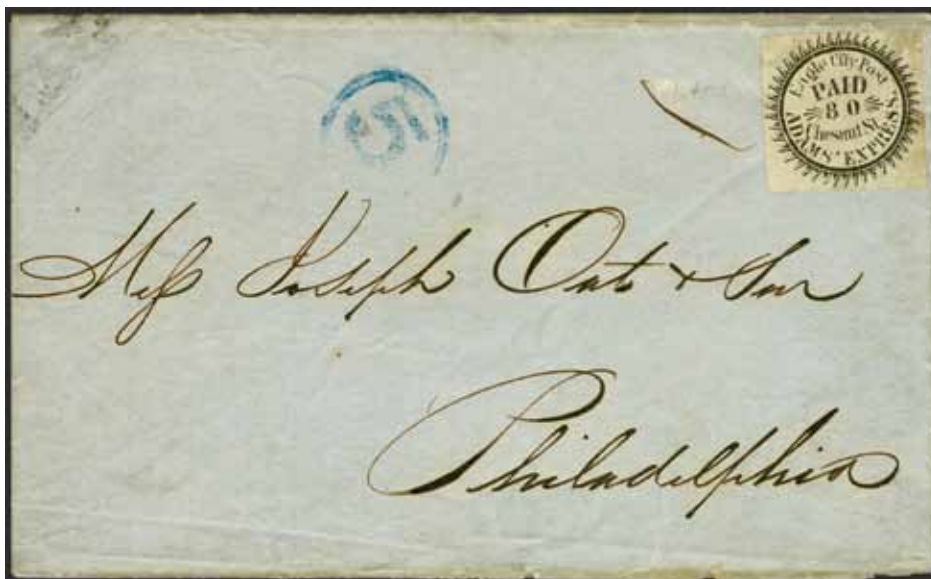 Eagle City Post
PAID
80
Chesnut St.
ADAMS' EXPRESS.
5
Mess Joseph Oat & Son
Philadelphia